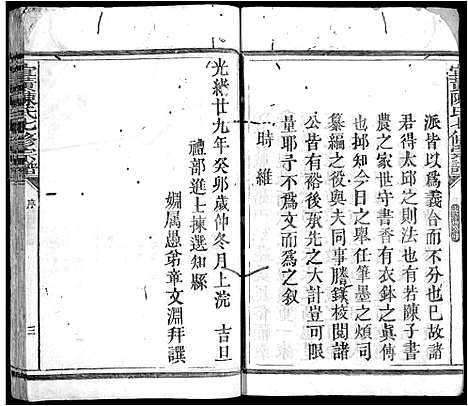 宜黃陳氏七修宗譜
派皆以爲義合而不分也已故諸
君得太邱之則法也有若陳子書
農之家世守書香有衣鉢之眞傳
也然今日之舉任筆墨之煩司
纂編之殷與夫同事謄錄校閱諸
公皆有裕後承先之大計豈可限
量耶予不爲文而爲之叙
時維
光緒廿九年癸夘歲仲冬月上浣 吉旦
禮部進士揀選知縣
姻属愚弟章文淵拜譔
宜黃陳氏七修宗譜
序
三